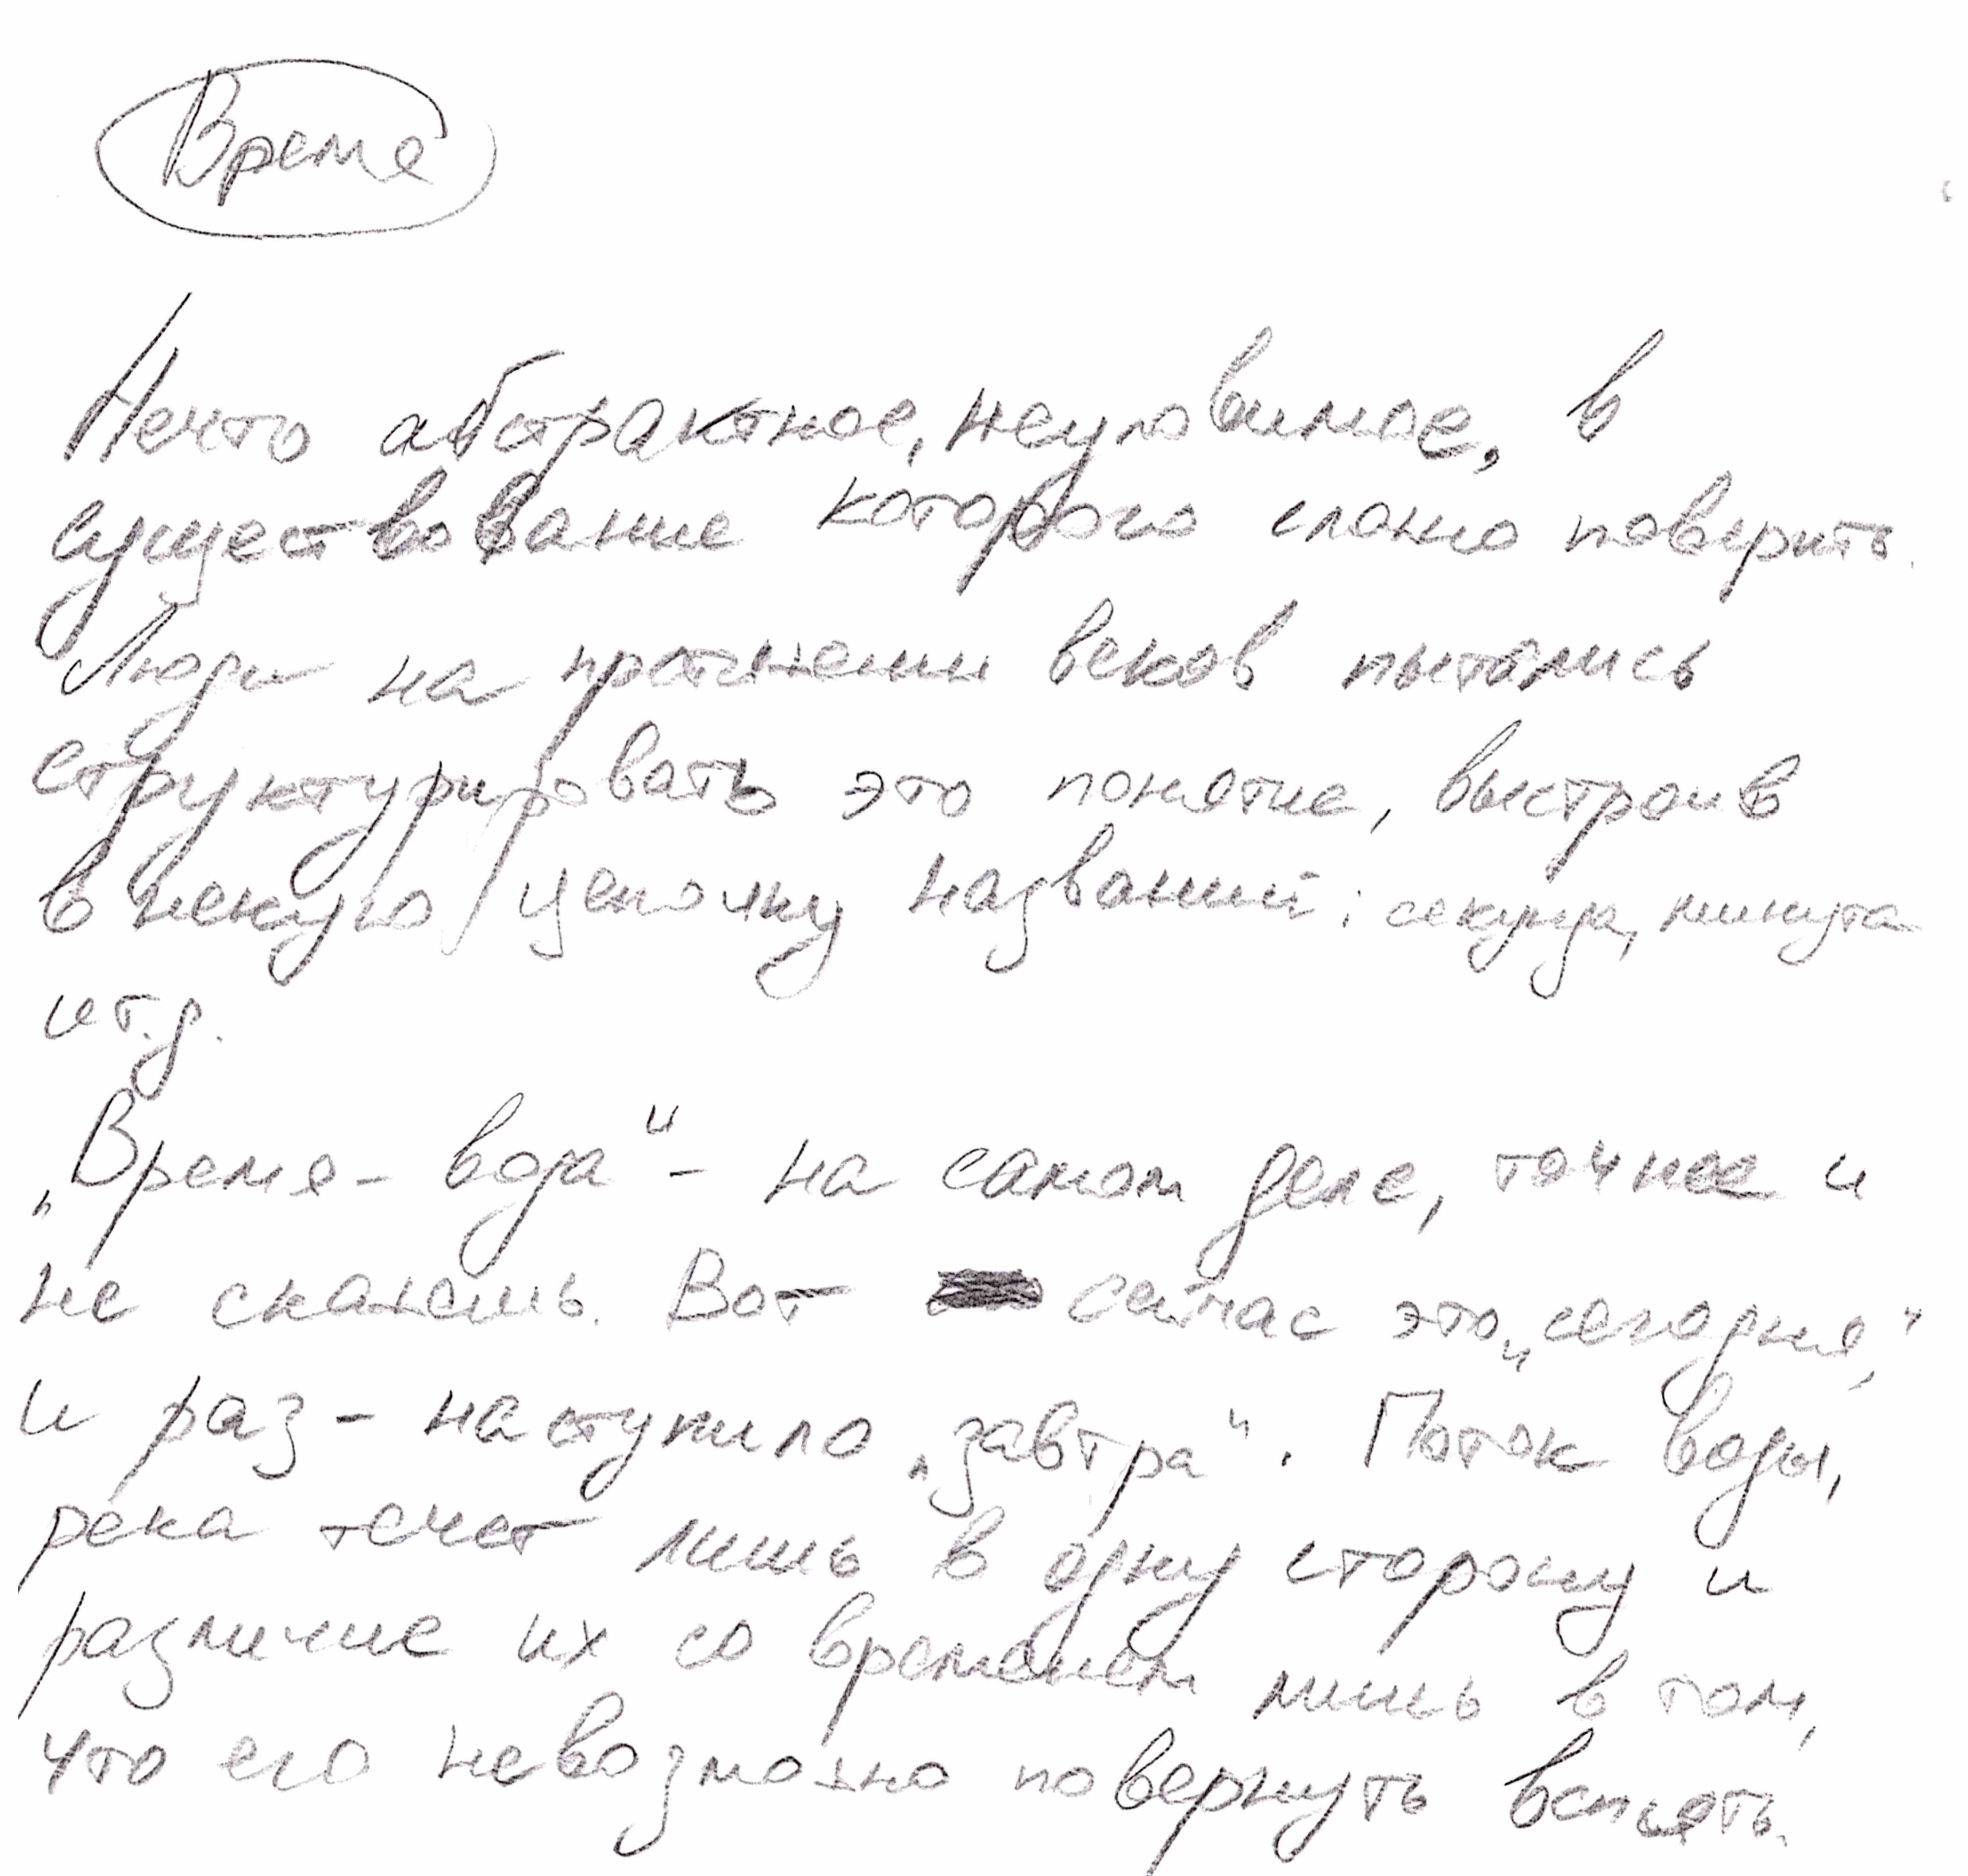 Время
Нечто абстрактное, неуловимое, в
существование которого сложно поверить.
Люди на протяжении веков пытались
структурировать это понятие, выстроив
в некую цепочку названий: секунда, минута
и т.д.
„Время - вода“ - на самом деле, точнее и
не скажешь. Вот сейчас это „сегодня“,
и раз - наступило „завтра“. Поток воды,
река течет лишь в одну сторону и
различие их со временем лишь в том,
что его невозможно повернуть вспять.